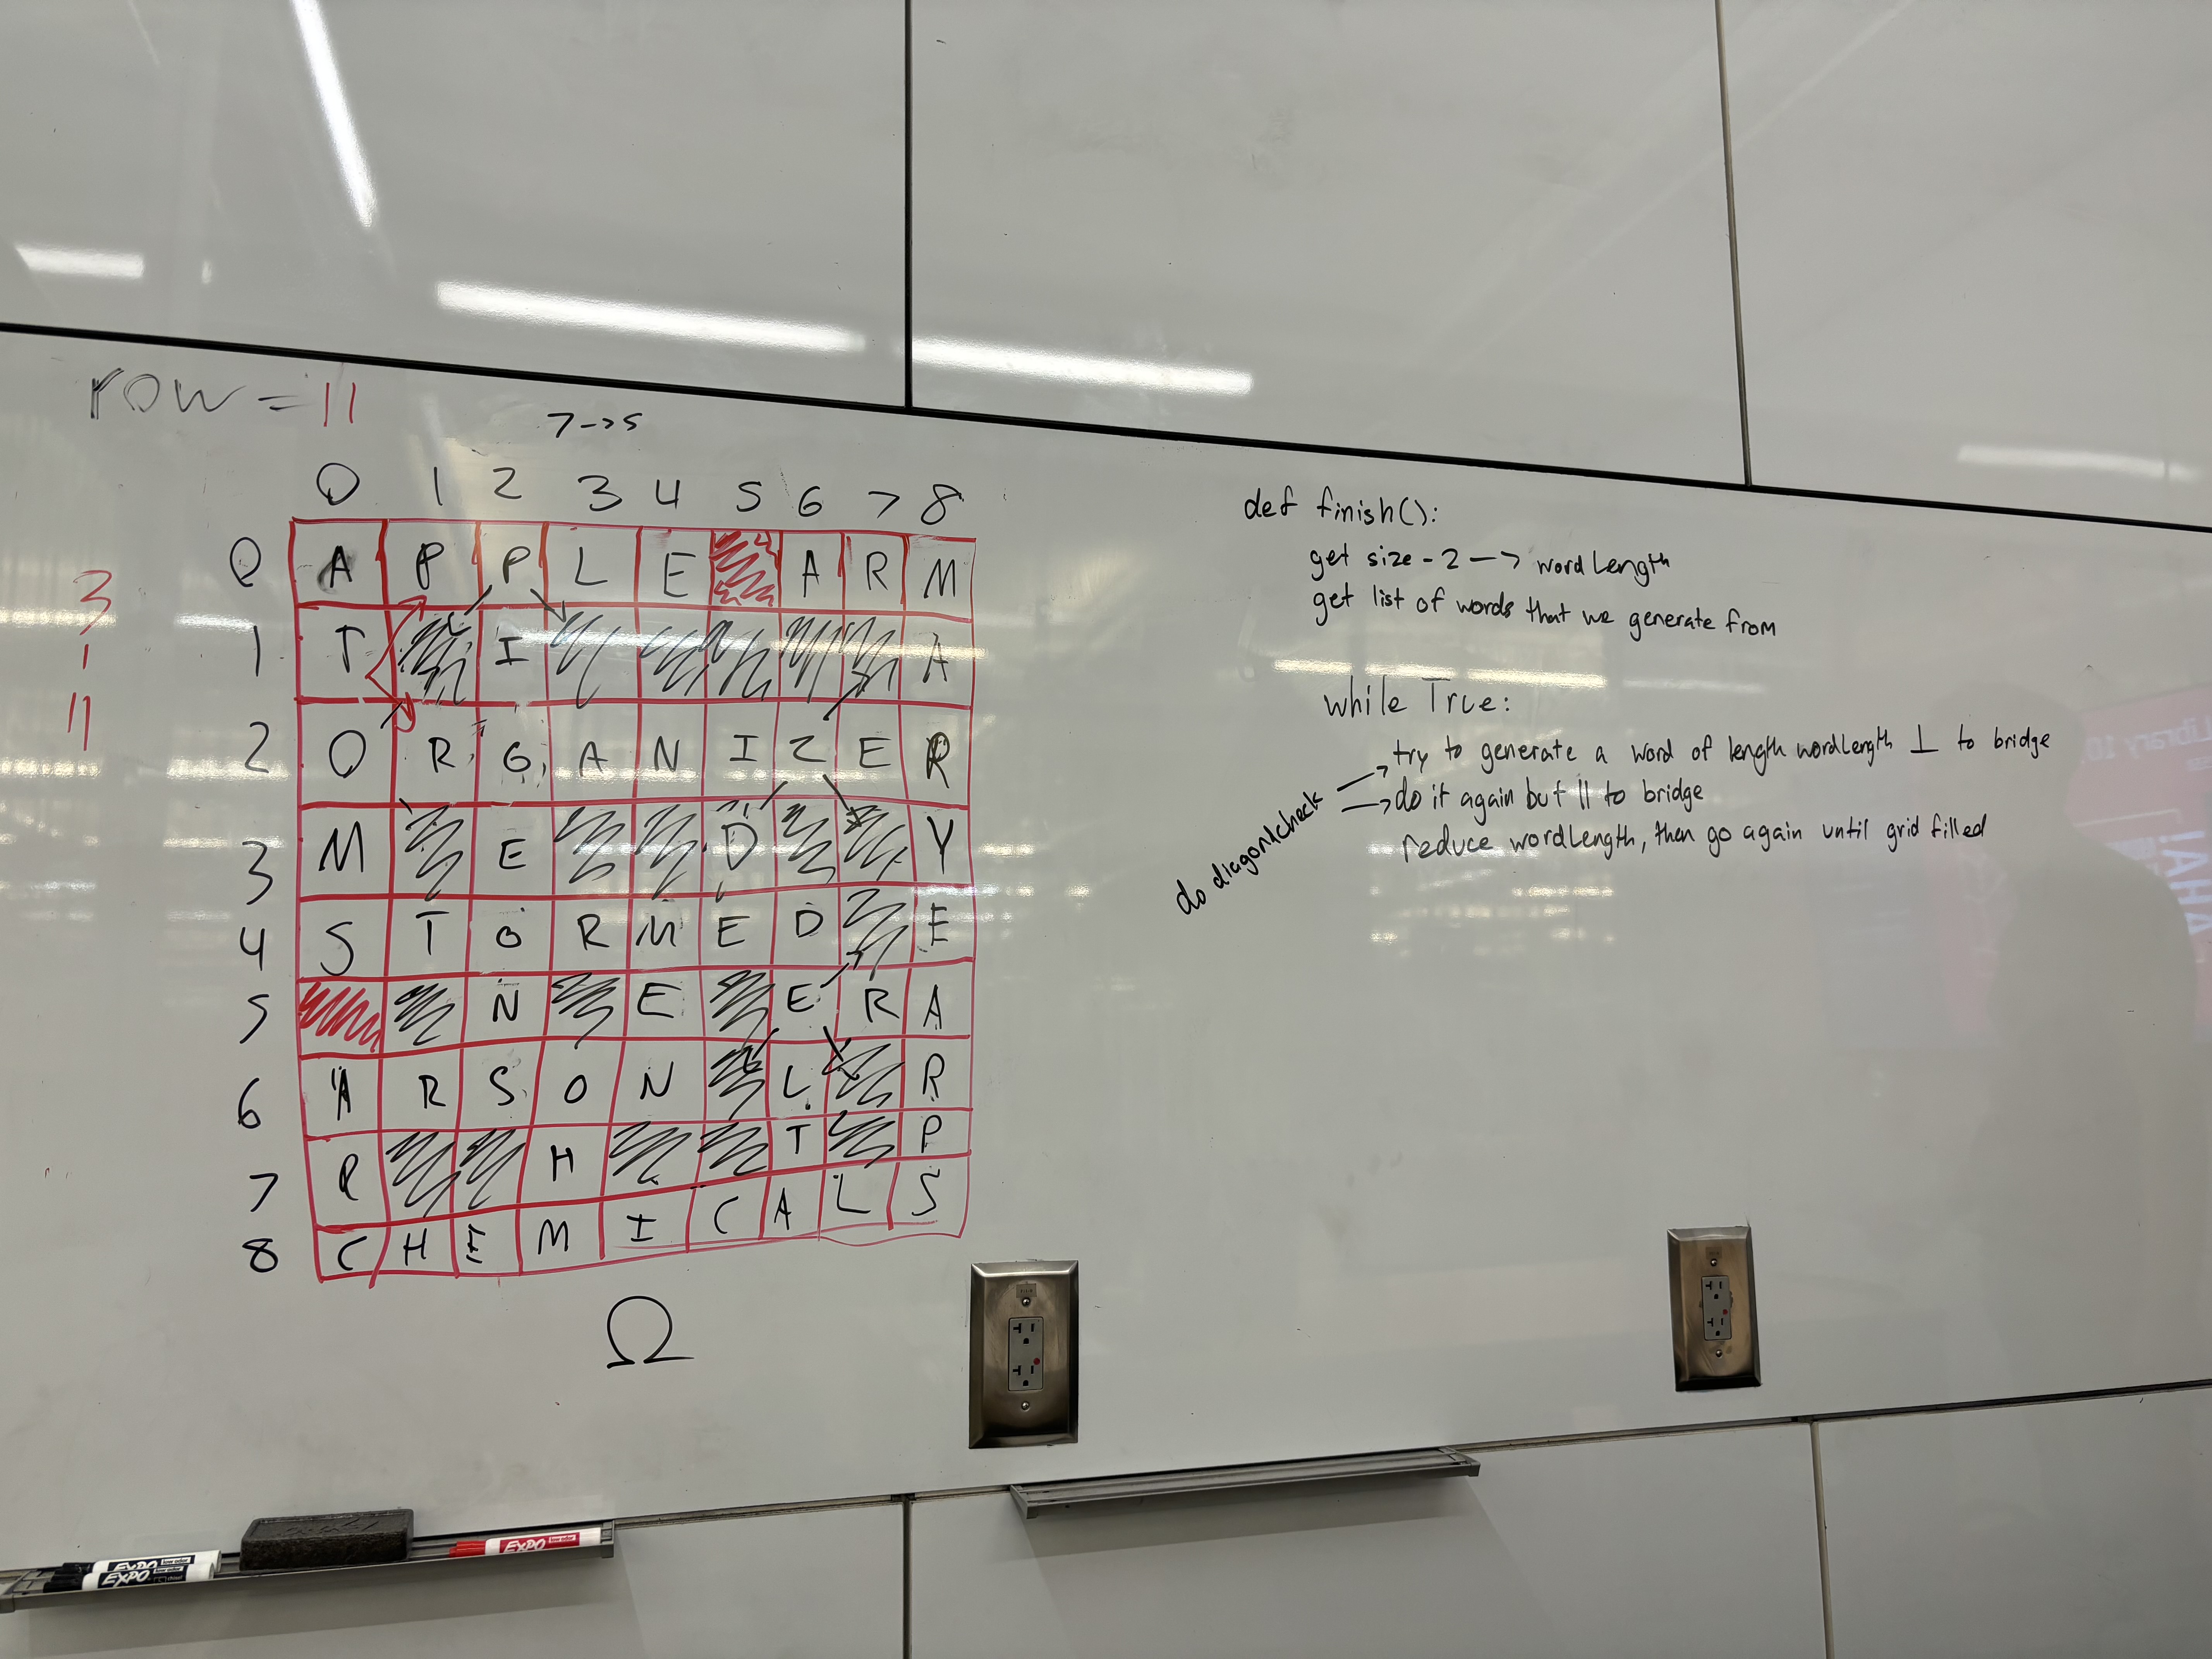 row = 11
7->5
0 1 2 3 4 5 6 7 8
0 A P P L E A R M
1 T I A
2 O R G A N I Z E R
3 M E D Y
4 S T O R M E D E
5 N E E R A
6 A R S O N L R
7 H T P
8 C H E M I C A L S
3
1
11
Ω
def finish():
get size - 2 —> wordLength
get list of words that we generate from
while True:
try to generate a word of length wordLength ⊥ to bridge
do it again but || to bridge
reduce wordLength, then go again until grid filled
do diagonalcheck
EXPO
EXPO
EXPO
Library 10